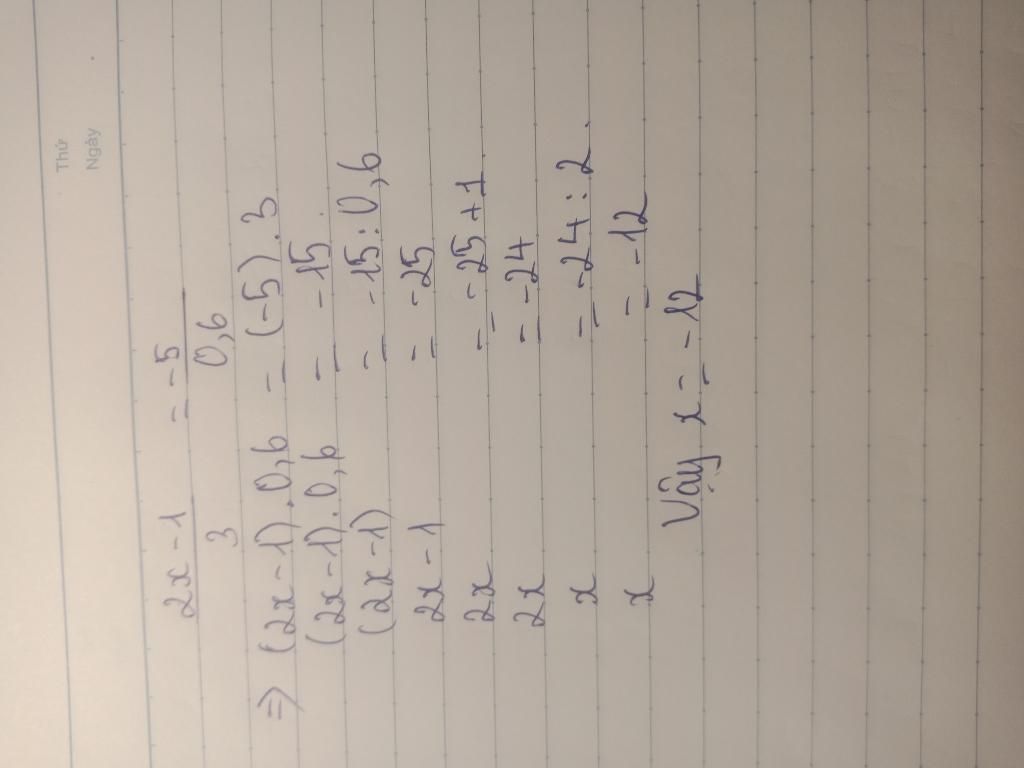 Thứ
Ngày
2x - 1 = -5
3 0,6
⇒ (2x - 1).0,6 = (-5).3
(2x - 1).0,6 = -15
(2x - 1) = -15:0,6
2x - 1 = -25
2x = -25 + 1
2x = -24
x = -24:2
x = -12
Vậy x = -12